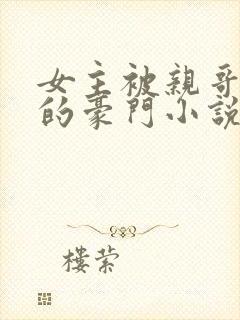 女主被親哥
的豪門小說
樓縈